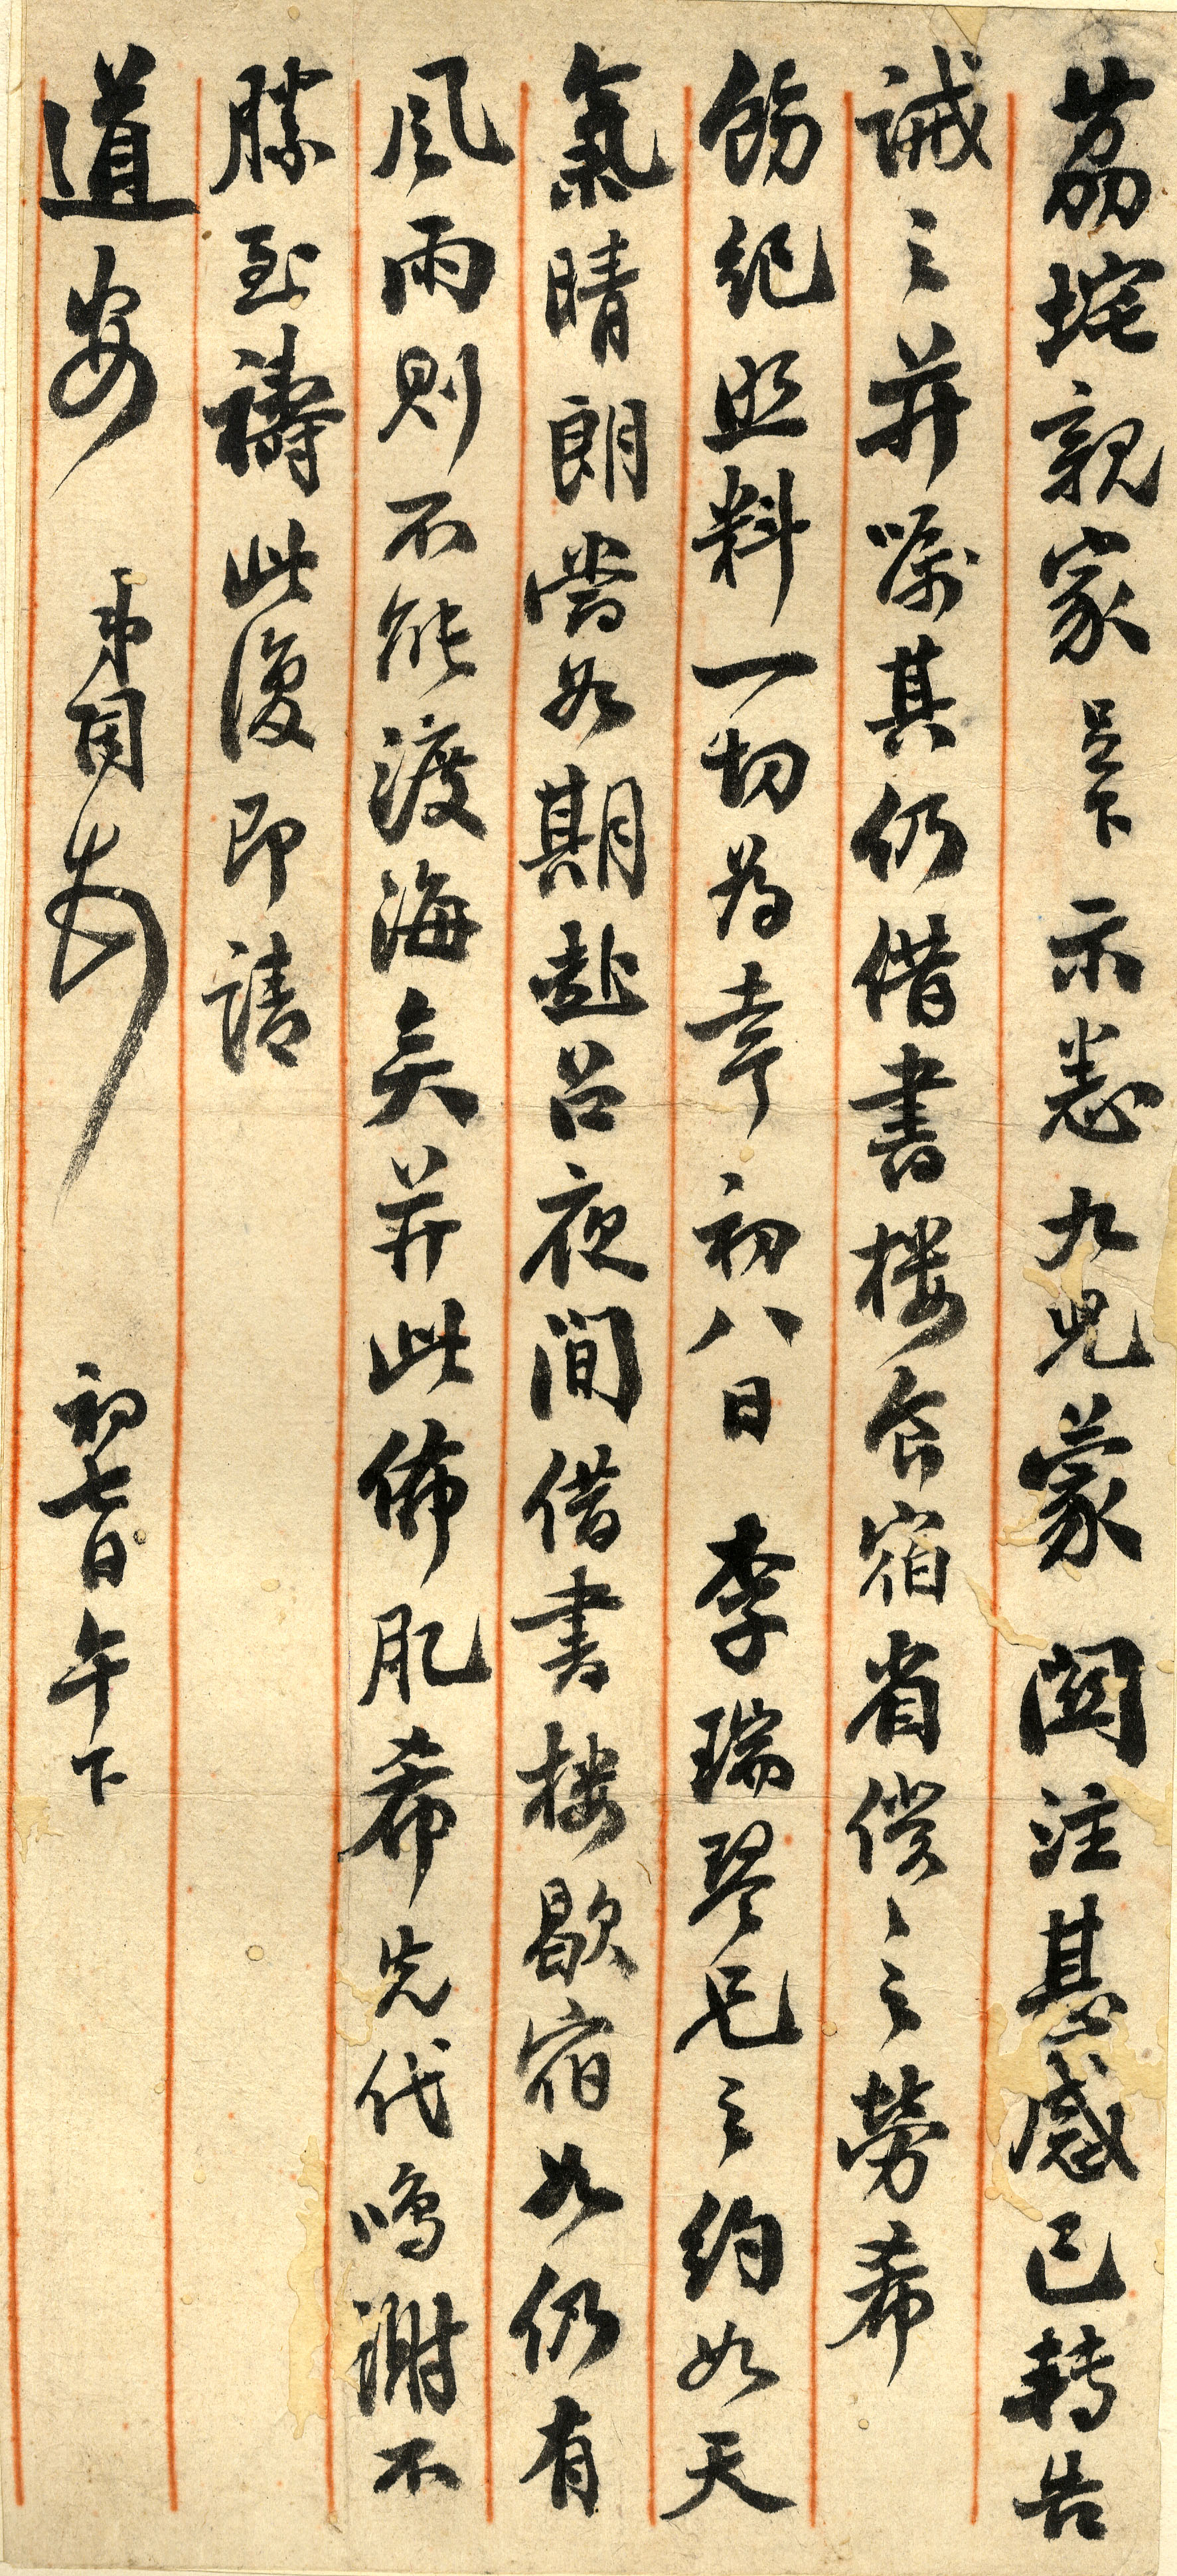 荔垞親家足下示悉九兒蒙關注甚感已轉告
誡之并囑其仍借書樓食宿省償之勞希
飭紀照料一切為幸初八日李瑞琴兄之約如天
氣晴朗當如期赴召夜間借書樓歇宿如仍有
風雨則不能渡海矣并此佈肊希先代鳴謝不
勝至禱此復即請
道安 弟 初七日午下